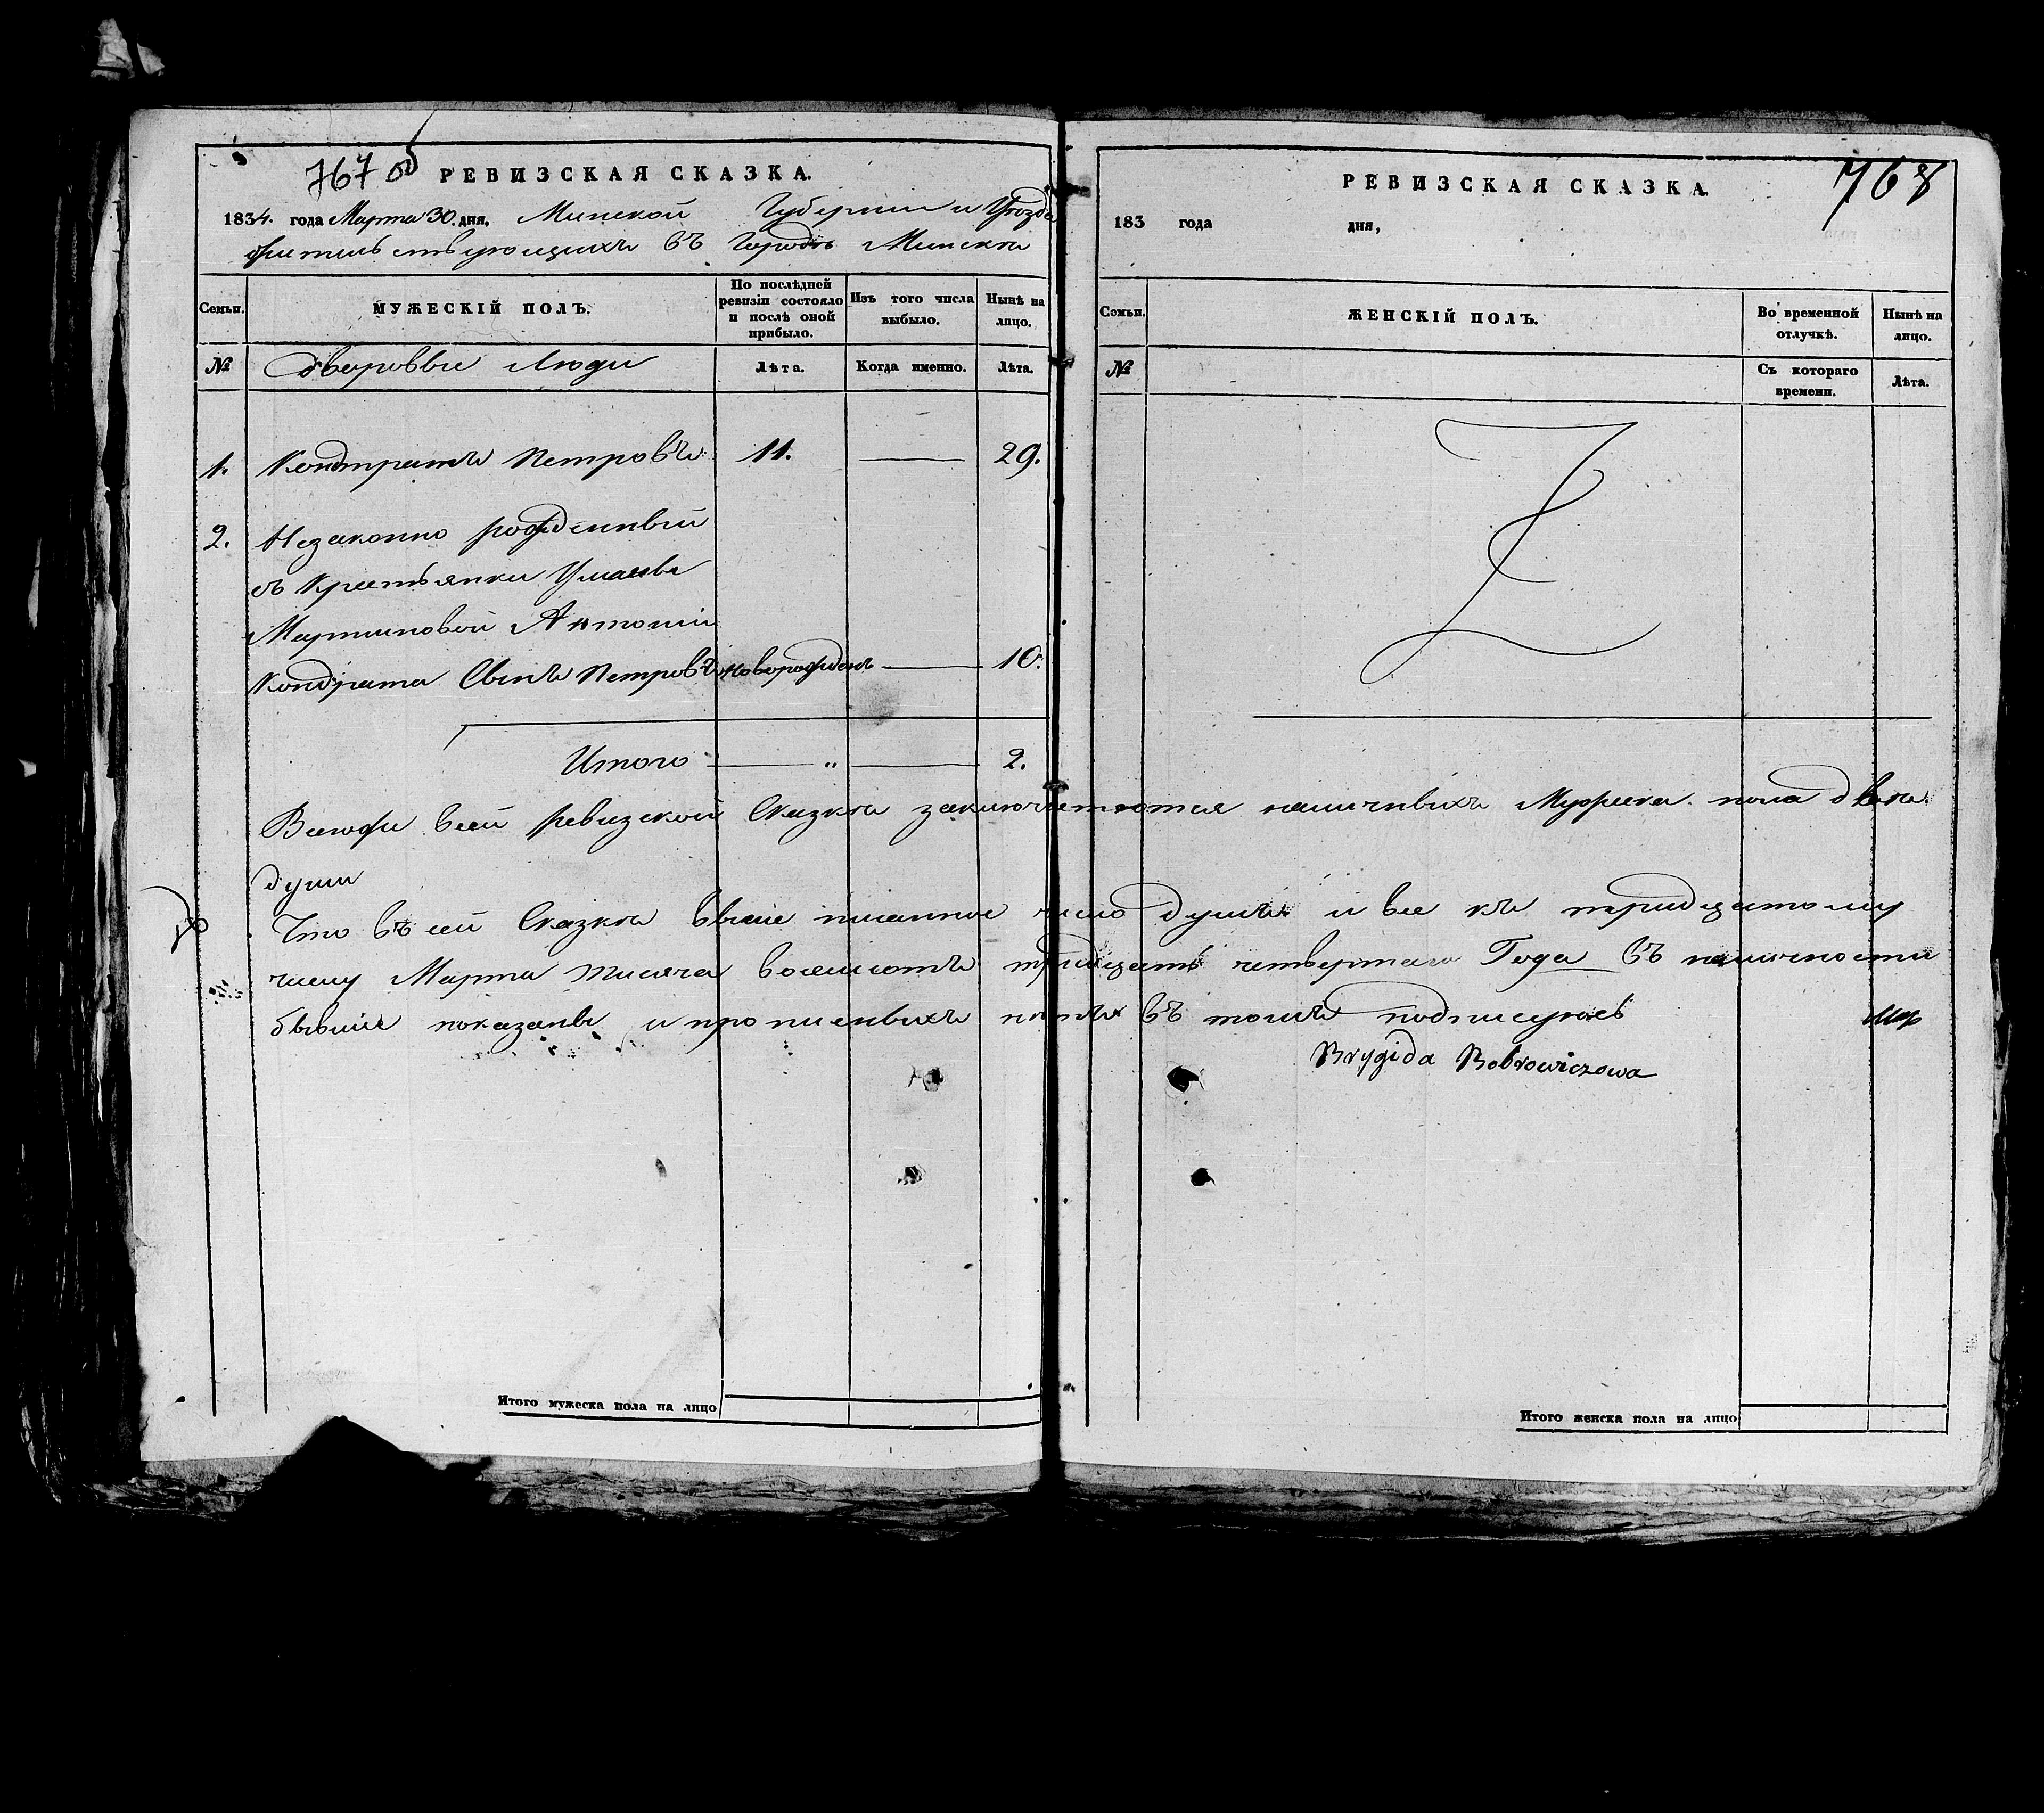 767 об
РЕВИЗСКАЯ СКАЗКА.
1834. года Марта 30. дня, Минской Губернии и Уѣзда
жительствующихъ въ Городѣ Минскѣ
Семьи.
МУЖЕСКІЙ ПОЛЪ.
По послѣдней ревизіи состояло и послѣ оной прибыло.
Изъ того числа выбыло.
Нынѣ на лицо.
№
дворовые Люди
Лѣта.
Когда именно.
Лѣта.
1. Кондратъ Петровъ 11. — 29.
2. Незаконно рожденный
съ Крестьянки
Мартиновой Антоній
Кондрата Сынъ Петровъ новорожденъ — 10.
Итого — „ — 2.
РЕВИЗСКАЯ СКАЗКА.
768
183 года дня,
Семьи.
ЖЕНСКІЙ ПОЛЪ.
Во временной отлучкѣ.
Нынѣ на лицо.
№
Съ котораго времени.
Лѣта.
Всегожъ всей ревизской Сказкѣ заключается наличныхъ Мужеска пола двѣ
души
Что въ сей Сказкѣ выше писанное число душъ и все къ тридцатому
числу Марта тисяча восемсотъ тридцать четвертаго Года въ наличности
бывшіе показаны и прописныхъ нѣтъ въ томъ подписуюсь
Brygida Bobrowiczowa
Итого мужеска пола на лицо
Итого женска пола на лицо